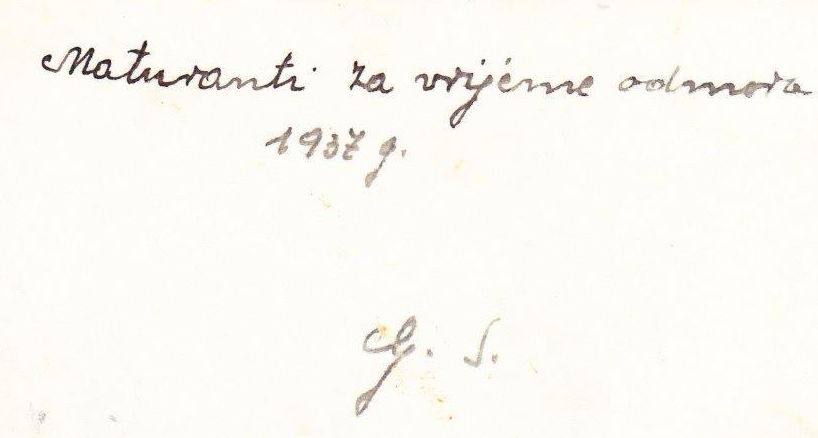 Maturanti za vrijeme odmora
1937 g.
G. S.